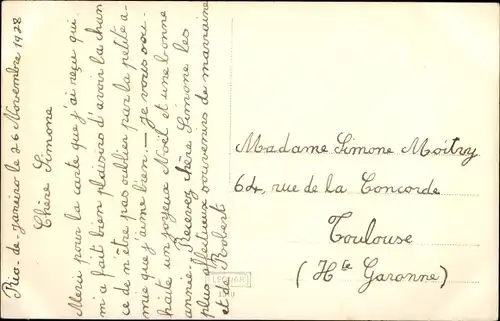 Rio-de-janeiro le 26 Novembre 1928
Chère Simone
Merci pour la carte que j'ai reçu qui
m'a fait bien plaisirs d'avoir la chan
ce de n'être pas oublier par la petite a-
mie que j'aime bien. — Je vous sou-
haite un joyeux Noël et une bonne
année. Recevez chère Simone les
plus affectueux souvenirs de marraine
et de Robert
Madame Simone Moitry
64, rue de la Concorde
Toulouse
(Hte Garonne)